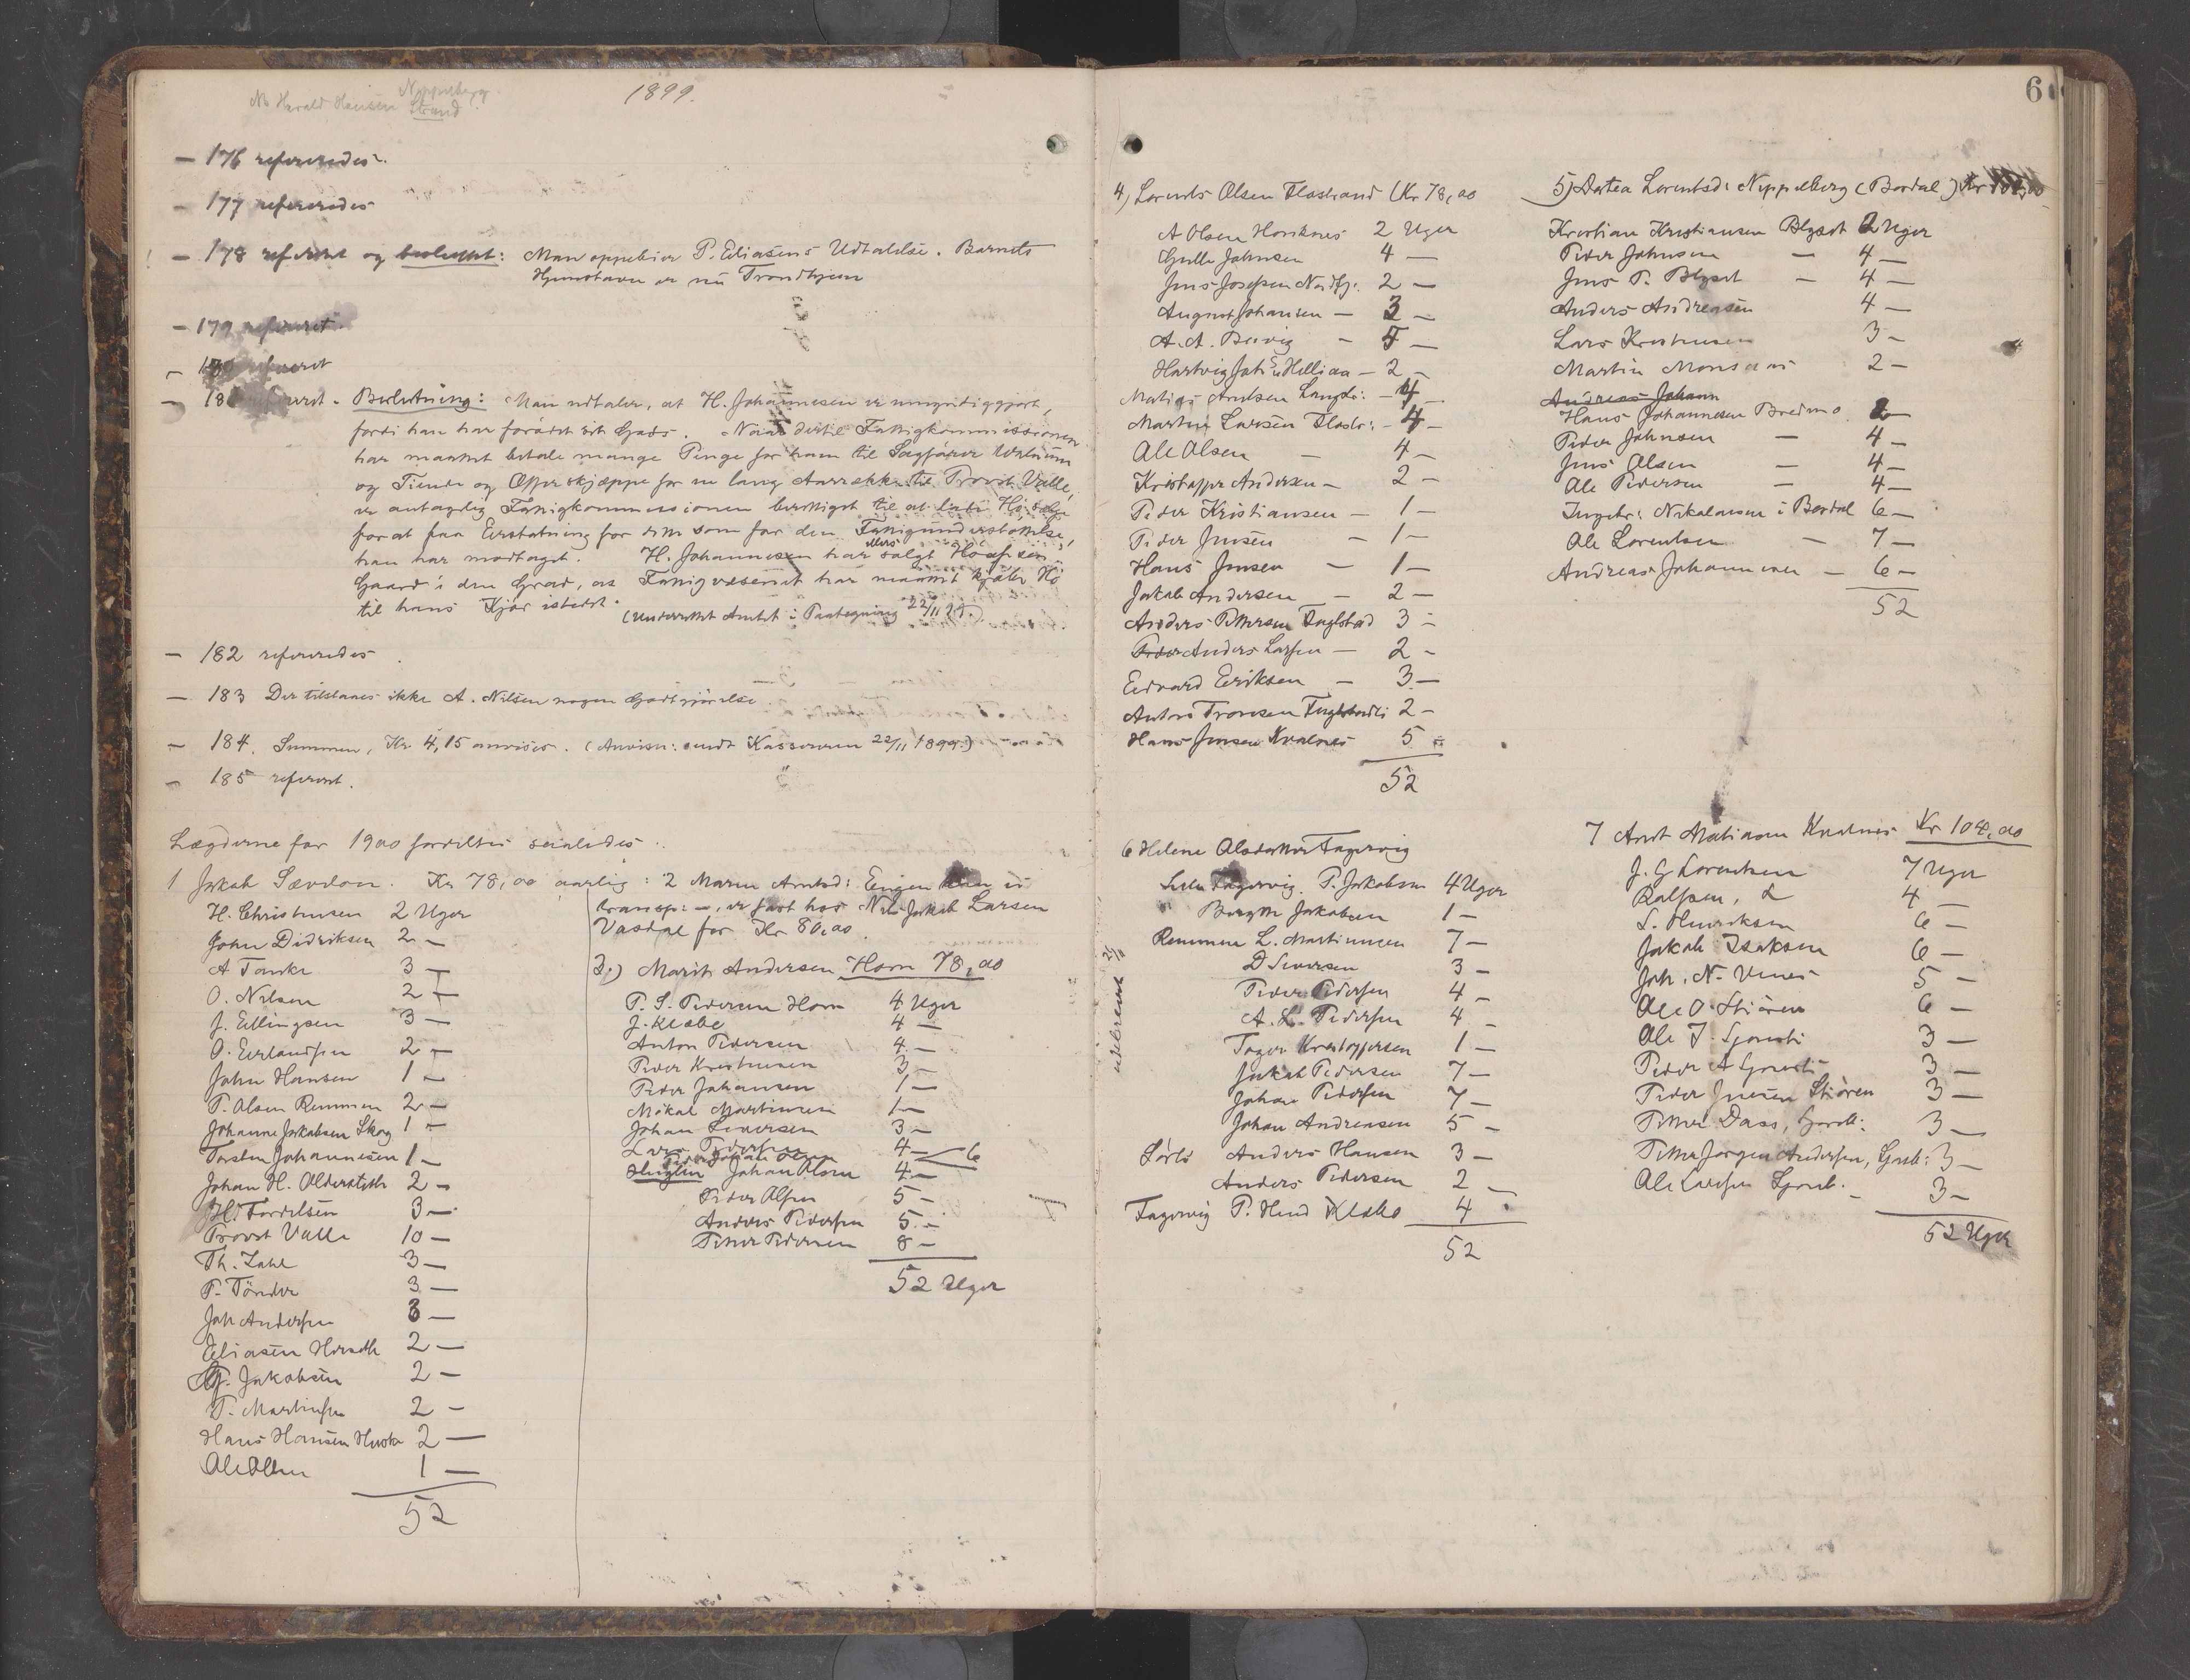 Nb Harald Hansen Neppelberg
Strand
1899.
— 176 refereredes.
— 177 refereredes
— 178 referert og besluttet: Man oppebier P. Eliasens Udtalelse. Barnets
Hjemstavn er nu Trondhjem
— 179 referert
— 180 referert
— 181 referert. Beslutning: Man udtaler, at H. Johannesen er umyndiggjort,
fordi han har forødt sit Gods. Naar dertil Fattigkommissionen
har maattet betale mange Penge for ham til Sagfører
og Tiende og Offerskjæppe for en lang Aarrække til Provst Valle,
er antagelig Fattigkommissionen berettiget til at lade Hø sælge
for at faa Erstatning for dem som for den Fattigunderstøttelse,
han har modtaget. H. Johannesen har ellers solgt Hø af sin
Gaard i den Grad, at Fattigvæsenet har maattet kjøbe Hø
til hans Kjør istedet.
(Underrettet Amtet i Paategning 22/11 99.)
— 182 refereredes
— 183 Der tilstaaes ikke A. Nilsen nogen Godtgjørelse
— 184. Summen, Kr 4,15 anvises. (Anvisn: sendt Kassereren 22/11 1899.)
— 185 referert.
Lægderne for 1900 fordeltes saaledes:
1 Jakob Sævdon. Kr 78,00 aarlig:
H. Christensen 2 Uger
John Didriksen 2 —
A Tanke 3 —
O. Nilsen 2 —
J. Ellingsen 3 —
O. Eerlandsen 2 —
John Hansen 1 —
P. Olsen Remmen 2 —
Johanne Jakobsen Skog 1 —
Torsten Johannesen 1 —
Johan H. Aldersteth 2 —
H. Tordelsen 3 —
Provst Valle 10 —
Th. Zahl 3 —
P. Tönder 3 —
Joh Andersen 3 —
Eliasen 2 —
G. Jakobsen 2 —
P. Martinsen 2 —
Hans Hansen 2 —
Ole Olsen 1 —
52
2 Maren Arntsd:
transp: —, er fast hos Nils Jakob Larsen
Vasdal for Kr 80,00
3.) Marit Andersen Horn 78,00
P. S. Pedersen Horn 4 Uger
J. Klæbo 4 —
Anton Pedersen 4 —
Peder Kristensen 3 —
Peder Johansen 1 —
Mikal Martinsen 1 —
Johan Siversen 3 —
Lars Pedersen 4 —
6
Johan Olsen 4 —
Peder Olsen 5 —
Anders Pedersen 5 —
Petter Pedersen 8 —
52 Uger
6
4) Lorents Olsen Flostrand (Kr 78,00
A Olsen Hansknes 2 Uger
Gulle Johnsen 4 —
Jens Josefsen Nordfj: 2 —
August Johansen — 3 —
A. A. Breivig — 5 —
Hartvig Joh:sen Helliaa — 2 —
Matias Arntsen Langs: — 4 —
Martin Larsen Flostr: — 4 —
Ole Olsen — 4 —
Kristoffer Andersen — 2 —
Peder Kristiansen — 1 —
Peder Jensen — 1 —
Hans Jensen — 1 —
Jakob Andersen — 2 —
Anders Pettersen Fuglstad 3 —
Peder Anders Larsen — 2 —
Edvard Eriksen — 3 —
Anton Tronsen Fuglstadli 2 —
Hans Jensen Kvalnes 5 —
52
5) Dortea Lorentsd: Neppelberg (Bardal) Kr 104,00
Kristian Kristiansen Blgsøt 2 Uger
Peder Johnsen — 4 —
Jens P. Blgsøt — 4 —
Anders Andreasen 4 —
Lars Kristensen 3 —
Martin Monsen 2 —
Andreas Johann
Hans Johannesen Bredmo 2 —
Peder Johnsen — 4 —
Jens Olsen — 4 —
Ole Pedersen — 4 —
Ingebr: Nikolaisen i Bardal 6 —
Ole Lorentsen — 7 —
Andreas Johannesen — 6 —
52
6 Helene Olsdatter Fagervig
Fagervig. P. Jakobsen 4 Uger
" Bergth Jakobsen 1 —
Remmen L. Martinusen 7 —
D Siversen 3 —
Peder Pedersen 4 —
A. L. Pedersen 4 —
Tøger Kristoffersen 1 —
Jakob Pedersen 7 —
Johan Pedersen 7 —
Johan Andreasen 5 —
Sørbø Anders Hansen 3 —
Anders Pedersen 2 —
Fagervig P. Hind Klæbo 4 "
52
7 Arnt Matiasen Kvalnes Kr 104,00
J. G Lorentsen 7 Uger
Ralfsen, L 4 —
S. Henriksen 6 —
Jakob Isaksen 6 —
Joh. N. Venes 5 —
Ole O. Stiören 6 —
Ole J. Sjonsti 3 —
Peder A Sjonsti 3 —
Peder Jensen Stiören 3 —
Petter Dass, Sjonb: 3 —
Petter Jørgen Andersen, Sjonb: 3 —
Ole Larsen Sjonb. — 3 —
52 Uger